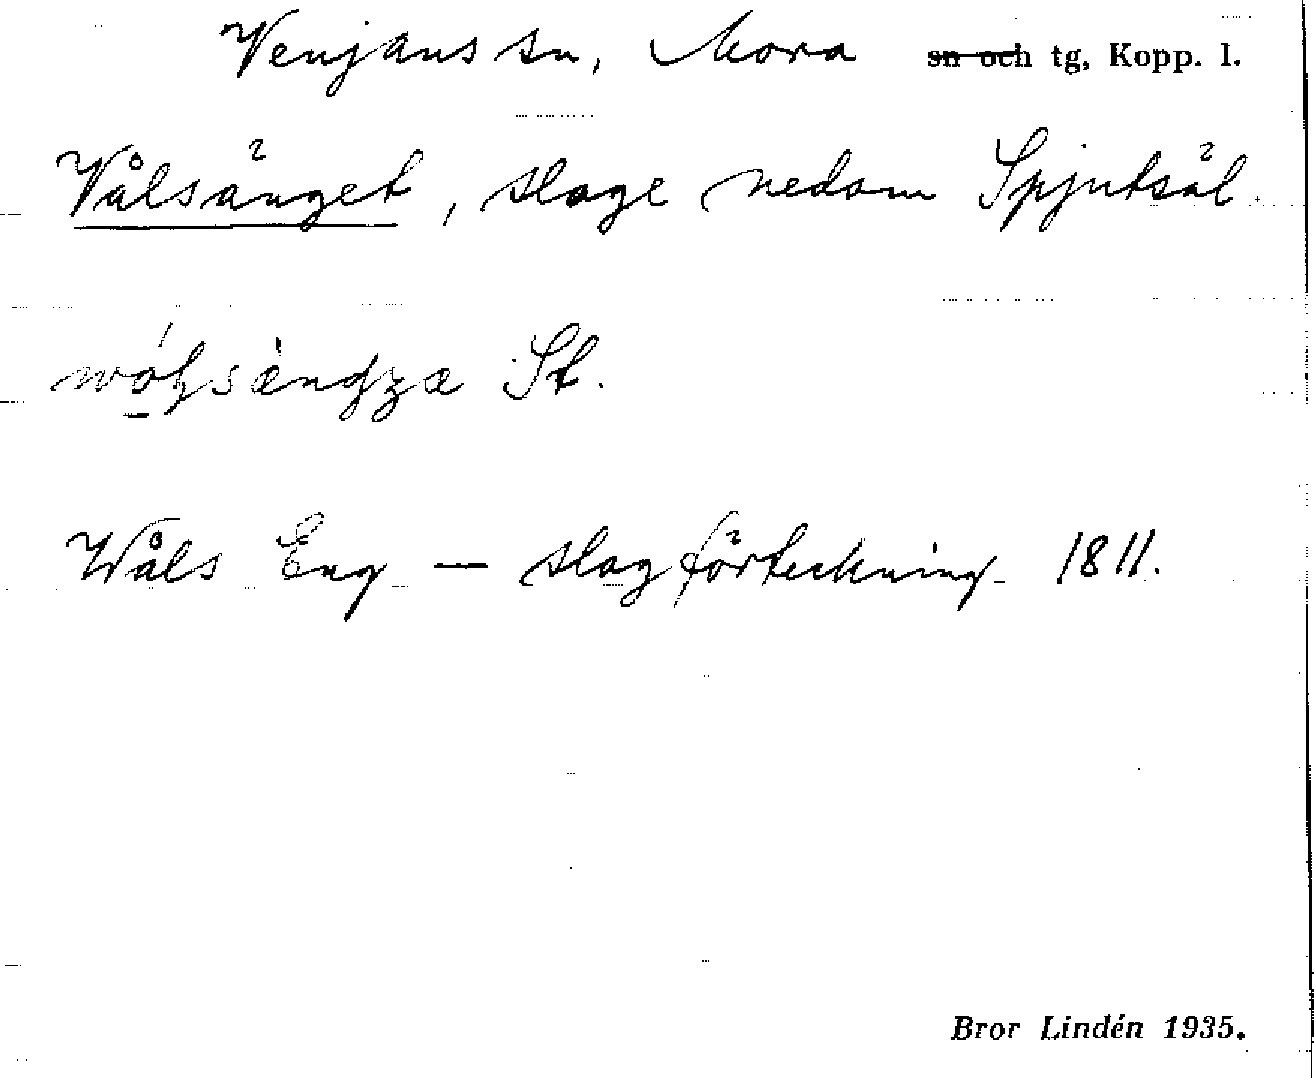 Venjans sn, Mora sn och tg, Kopp. l.
Vålsänget, slage nedom Spjutsäl.
St.
Wåls Eng — slagförteckning 1811.
Bror Lindén 1935.